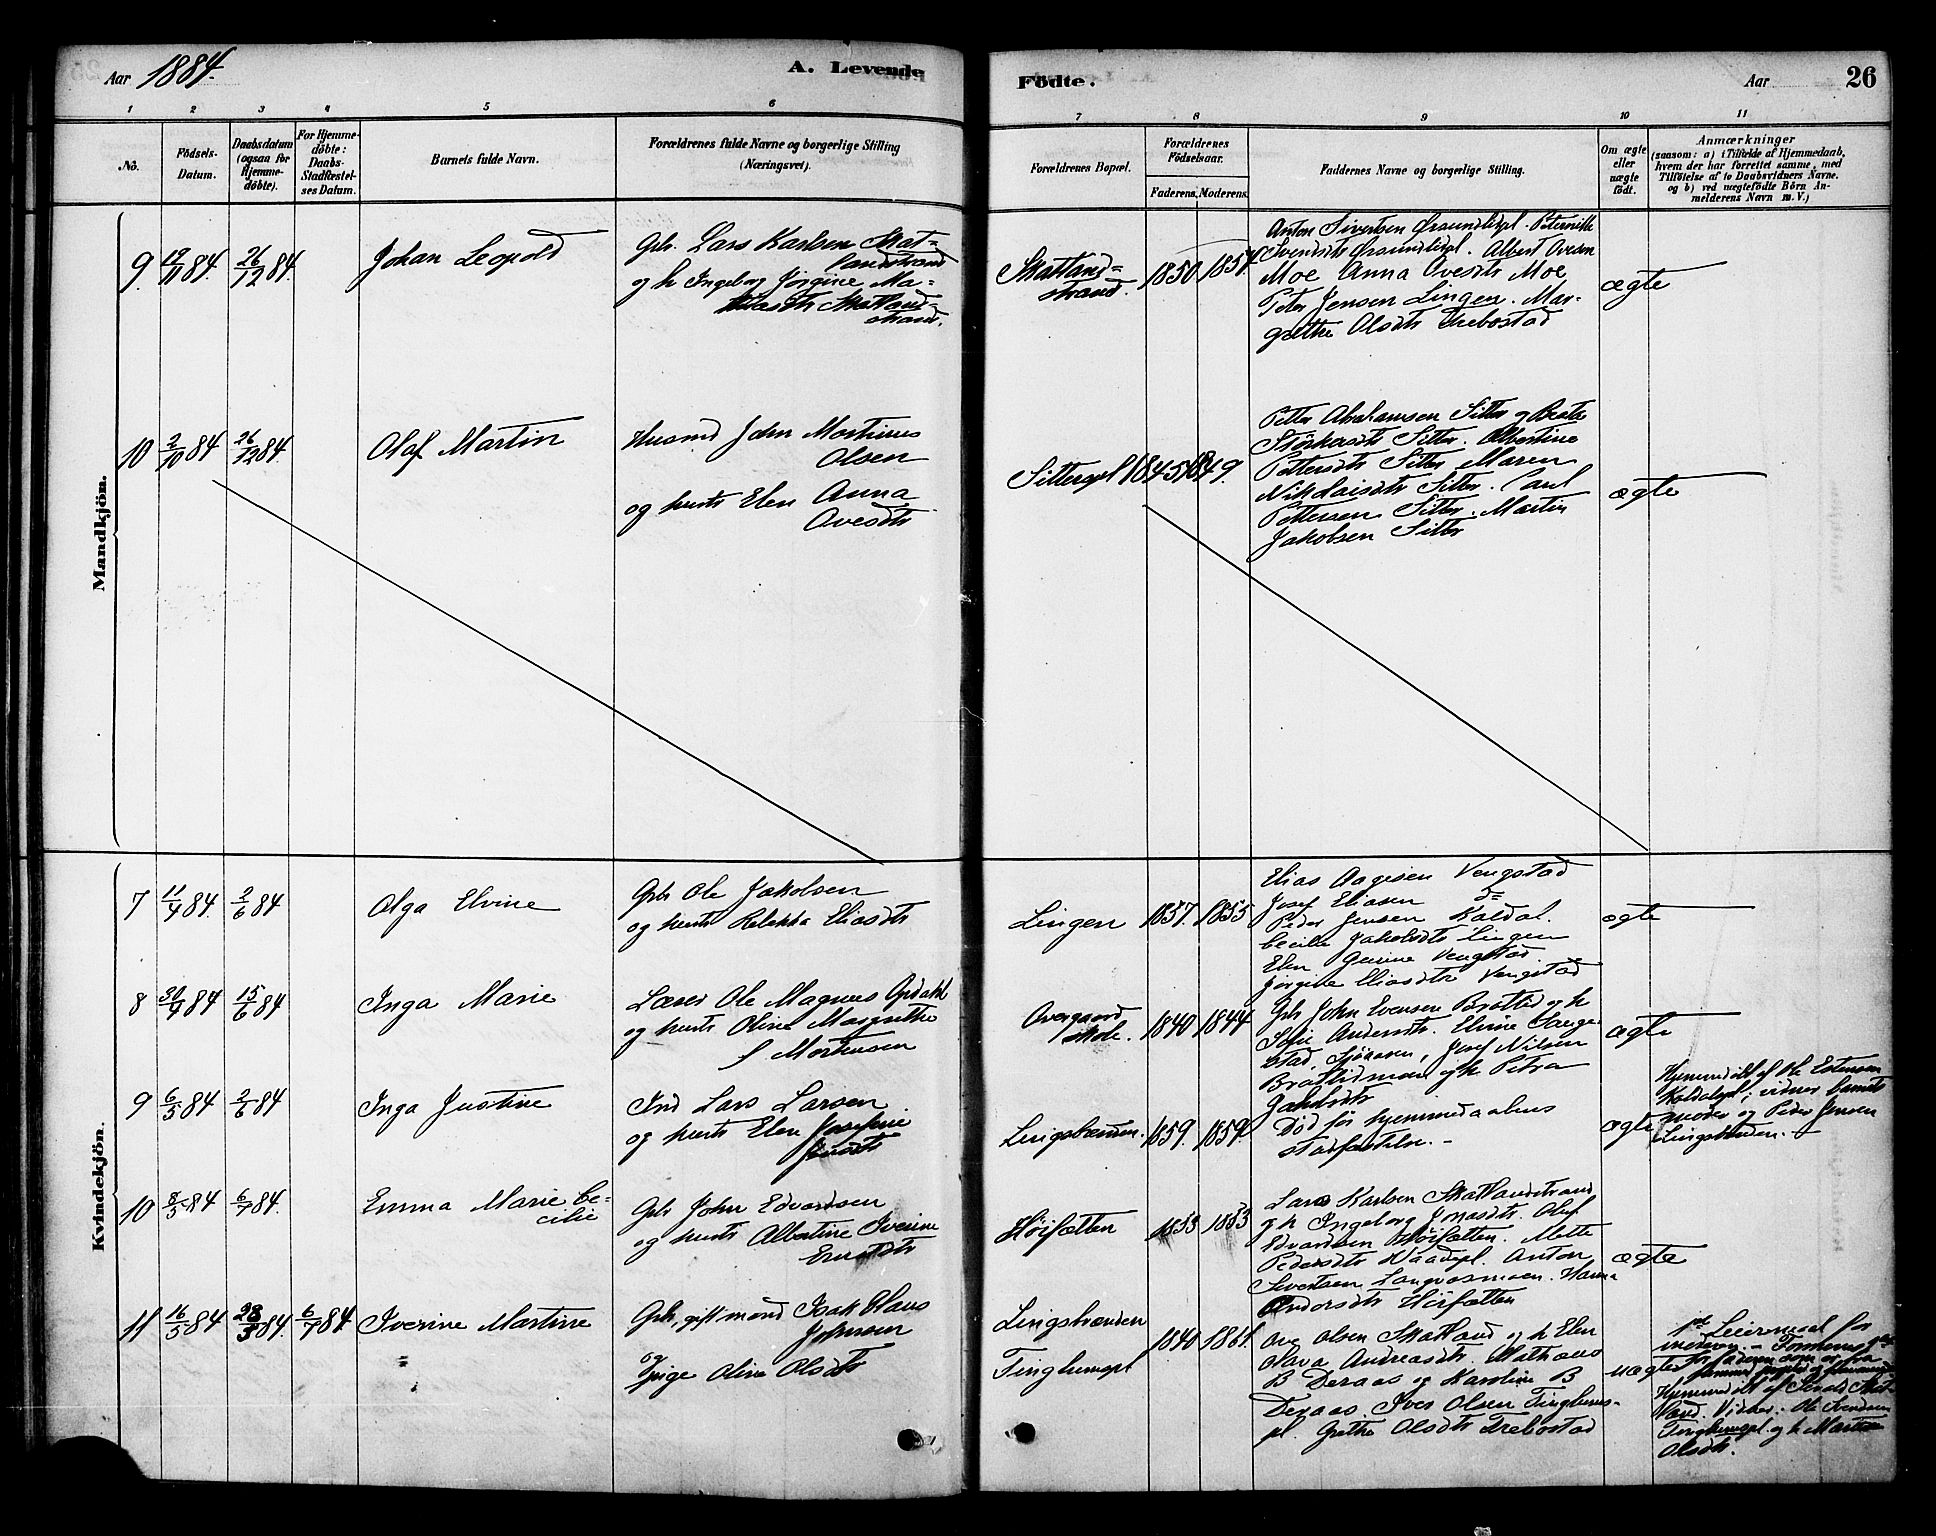 Aar 1884.
A. Levende
Födte.
Aar
26
1 2 3 4 5 6
7 8 9 10 11
No.
Födsels-
Datum.
Daabsdatum
(ogsaa for
Hjemme-
döbte).
For Hjemme-
döbte:
Daabs-
Stadfæstel-
ses Datum.
Barnets fulde Navn.
Forældrenes fulde Navne og borgerlige Stilling
(Næringsvei).
Forældrenes Bopæl.
Forældrenes
Födselsaar.
Faderens. Moderens.
Faddernes Navne og borgerlige Stilling.
Om ægte
eller
uægte
födt.
Anmærkninger
(saasom: a) i Tilfælde af Hjemmedaab,
hvem der har forrettet samme, med
Tilföielse af to Daabsvidners Navne,
og b) ved uægtefödte Börn An-
melderens Navn m. V.)
Mandkjön.
9. 19/11 84. 26/12 84.
Johan Leopold
Gbr. Lars Karlsen Skat-
landstrand
og h Ingeborg Jörgine Ma-
Skatland-
strand.
Skatland-
strand.
1850. 1857.
Anton Sivertsen Öraundlidpl. Peternille
Svendsdtr Öraundlidpl. Albert Ovesen
Moe Anna Ovesdtr Moe
Peter Jensen Lingen. Mar-
grethe Olsdtr Trebostad
ægte
10 2/10 84 26/12 84.
Olaf Martin
Husmd John Mortinus
Olsen
og hustr Elen Anna
Ovesdtr
Sitterpl 1845 1849.
Petter Abrahamsen Sitter og Beate
Störkersdtr Sitter. Albertine
Pettersdtr Sitter Maren
Nikolaisdtr Sitter. Paul
Pettersen Sitter. Martin
Jakobsen Sitter
ægte
Kvindekjön.
7 11/4 84. 2/6 84
Olga Elvine
Gbr Ole Jakobsen
og hustr Rebekka Eliasdtr
Lingen 1857. 1855
Elias Aagesen Vengstad
Josef Eliasen do
Peder Jensen Kaldal.
Cecilie Jakobsdtr Lingen
Elen Gurine Vengstad
Jörgine Eliasdtr Vengstad
ægte
8 30/4 84 15/6 84
Inga Marie
Lærer Ole Magnus Opdahl
og hustr Oline Margrethe
f Mortensen
Overgaard
skole. 1840 1844
Gbr John Evensen Brattlid og h
Sofie Andersdtr. Elvine
Josef Nilsen
Brattlidmoen og h. Petra
Jakobsdtr
ægte
9 6/5 84 2/6 84
Inga Justine
Ind Lars Larsen
og hustr Elen Josefine
Lingsbænden. 1859. 1859
Död för hjemmedaabens
stadfæstelse.
ægte
Hjemmedöbt af Ole Estensen
Kaldalspl; vidner barnets
moder og Peder Jensen
Lingsbænden.
10 8/5 84 6/7 84.
Emma Marie Ce-
cilie
Gbr John Edvardsen
og hustr Albertine Iverine
Höifætten 1853 1853
Lars Karlsen Skatlandstrand
og h Ingeborg Jonasdtr. Oluf
Edvardsen Höifætten. Mette
Pedersdtr Waadepl. Anton
Sivertsen Langvasmoen. Hanna
Andersdtr Höifætten
ægte
11 16/5 84 28/5 84. 6/7 84.
Iverine Martine
Gbr, gift mand Isak Klaus
Johnsen
og
Pige Oline Olsdtr
Lingsbænden
Tinghumspl
1840 1861.
Ove Olsen Skatland og h Elen
Olava Andreasdtr. Mathæus
B Deraas og Karoline B
Deraas. Iver Olsen Tinghums-
pl. Grethe Olsdtr Trebostad
uægte
1ste Leiermaal for
moderen.
Hjemmedöbt af Skat-
land. Vidner: Ole Svendsen
Tinghumspl. og h Martha
Olsdtr.